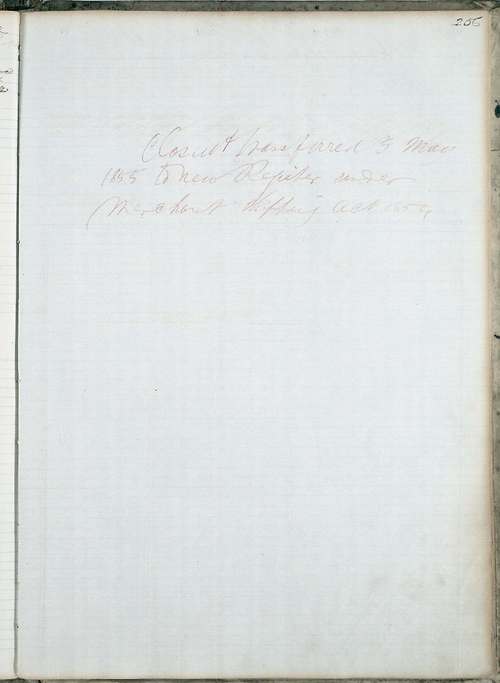 206
Closed & transferred 3 May
1855 to new Register under
Merchant Shipping Act 1854